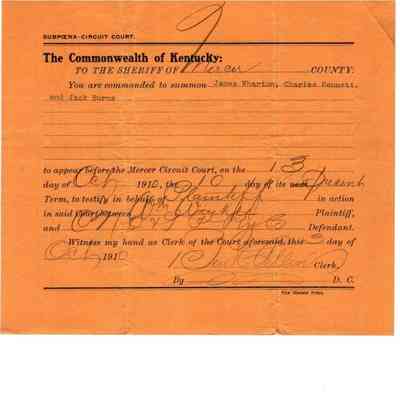 SUBPŒNA-CIRCUIT COURT.
The Commonwealth of Kentucky:
TO THE SHERIFF OF Mercer COUNTY:
You are commanded to summon James Wharton, Charles Bennett,
and Jack Burns
to appear before the Mercer Circuit Court, on the 13
day of Oct 1910, the 10 day of its next present
Term, to testify in behalf of Plaintiff in action
in said Court between Plaintiff,
and Defendant.
Witness my hand as Clerk of the Court aforesaid, this 3 day of
Oct 1910 Clerk,
By D. C.